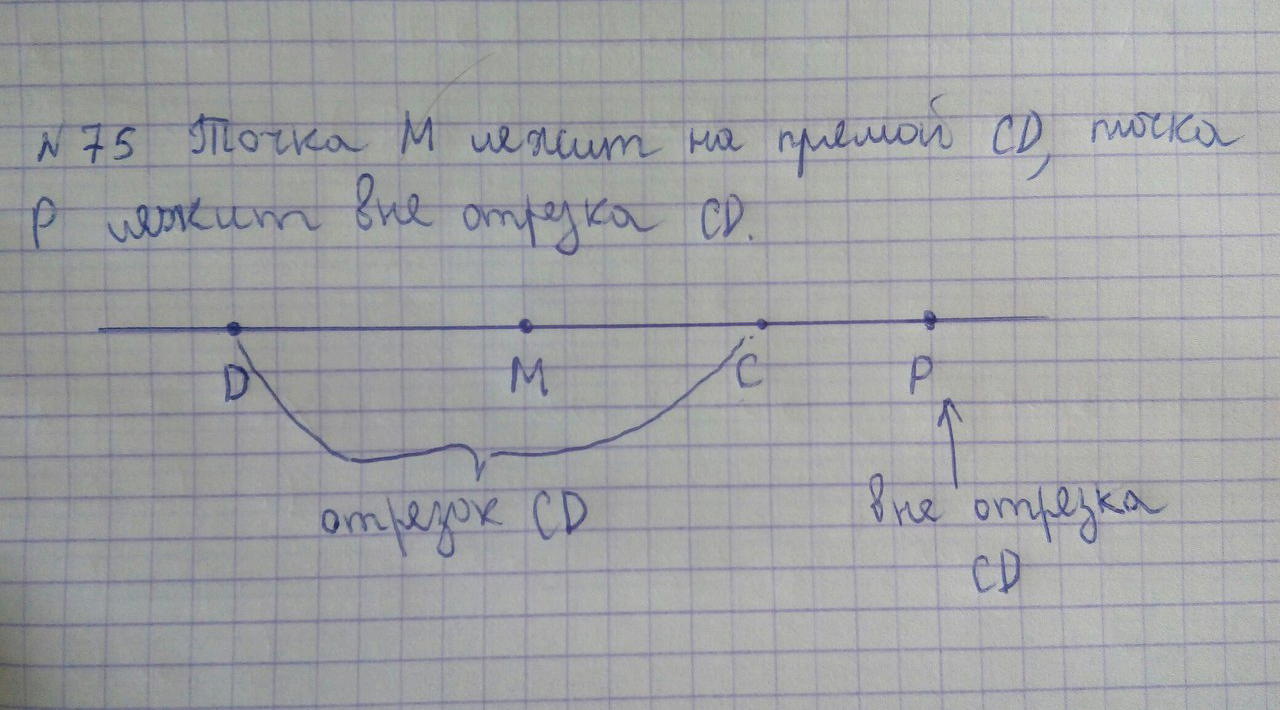 N 75 Точка М лежит на прямой CD, точка
P лежит вне отрезка CD.
D M C P
отрезок CD
вне отрезка
CD